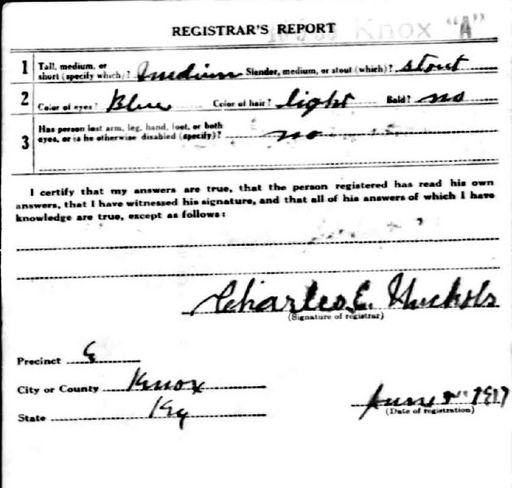 Knox "A"
REGISTRAR'S REPORT
1 Tall, medium, or short (specify which)? medium Slender, medium, or stout (which)? stout
2 Color of eyes? Blue Color of hair? light Bald? no
3 Has person lost arm, leg, hand, foot, or both eyes, or is he otherwise disabled (specify)? no
I certify that my answers are true, that the person registered has read his own
answers, that I have witnessed his signature, and that all of his answers of which I have
knowledge are true, except as follows:
Charles E.
(Signature of registrar)
Precinct
City or County Knox
State Ky
June 1917
(Date of registration)